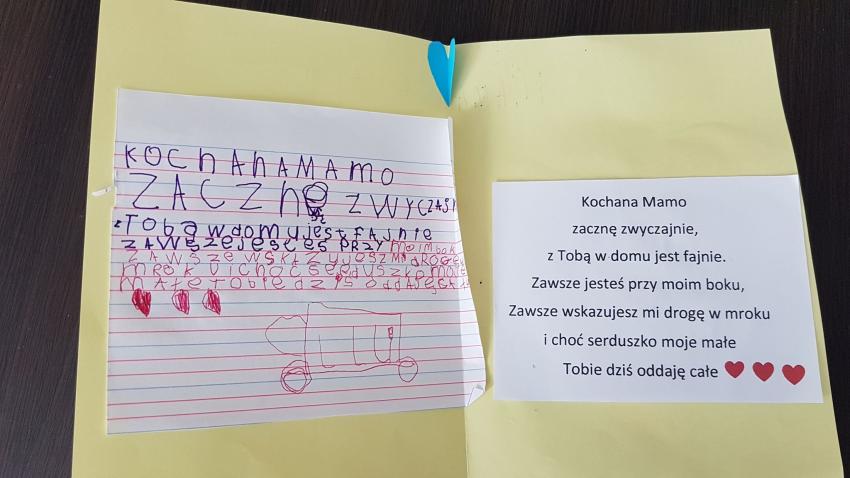 KOCHANAMAMO
ZACZNę ZWYCZAJ
zTobą wdomujestfajnie
ZAWSZEJESTEŚ PRZY moimbok
ZAWSZE WSKAZUJESZMIDROGĘ
MROKU ICHOĆ
MAŁETOBIEDZIŚ ODDAJĘCA
Kochana Mamo
zacznę zwyczajnie,
z Tobą w domu jest fajnie.
Zawsze jesteś przy moim boku,
Zawsze wskazujesz mi drogę w mroku
i choć serduszko moje małe
Tobie dziś oddaję całe